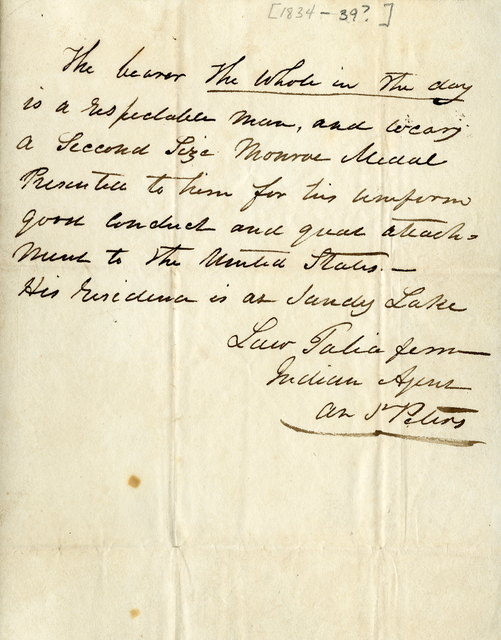 [1834-39?]
The bearer The Whole in the day
is a respectable man, and wears
a Seccond Size Monroe Medal
Presented to him for his uniform
good conduct and great attach=
ment to the United States.—
His residence is at Sandy Lake
Law Taliaferro
Indian Agent
at St Peters